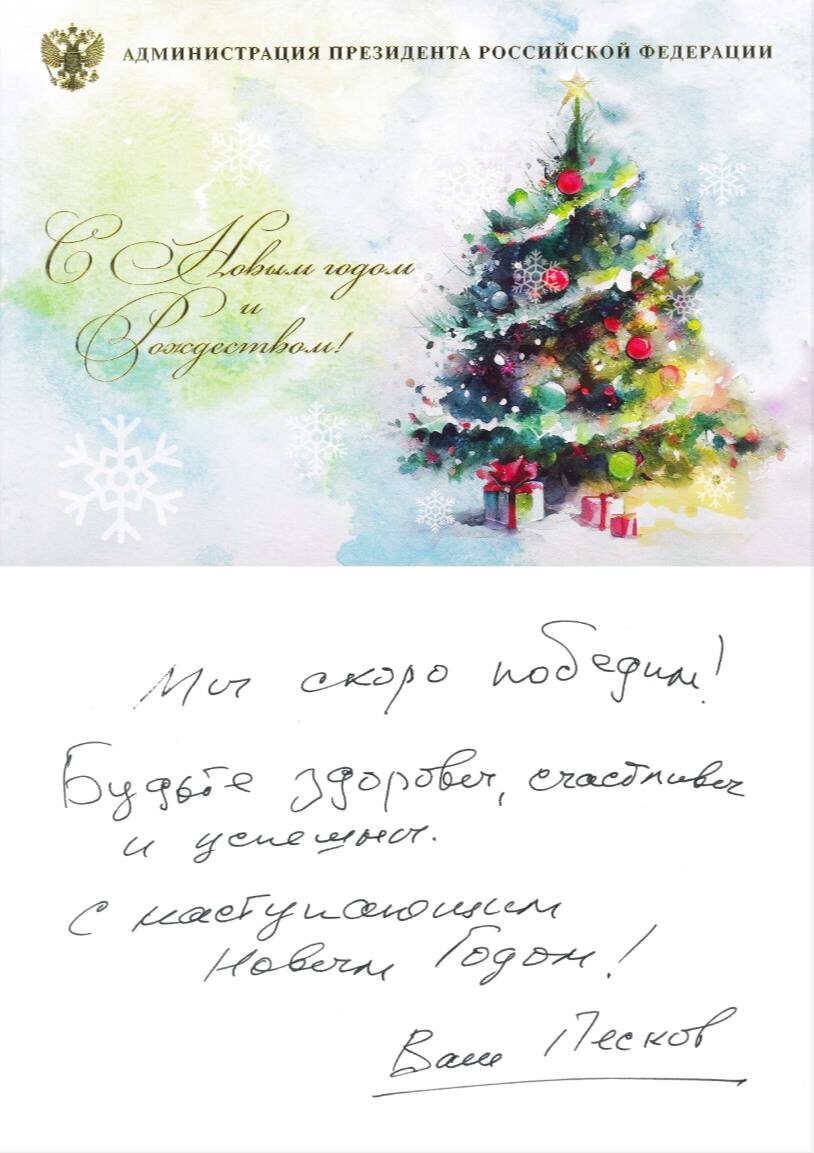 АДМИНИСТРАЦИЯ ПРЕЗИДЕНТА РОССИЙСКОЙ ФЕДЕРАЦИИ
С Новым годом
и
Рождеством!
Мы скоро победим!
Будьте здоровы, счастливы
и успешны.
С наступающим
Новым Годом!
Ваш Песков